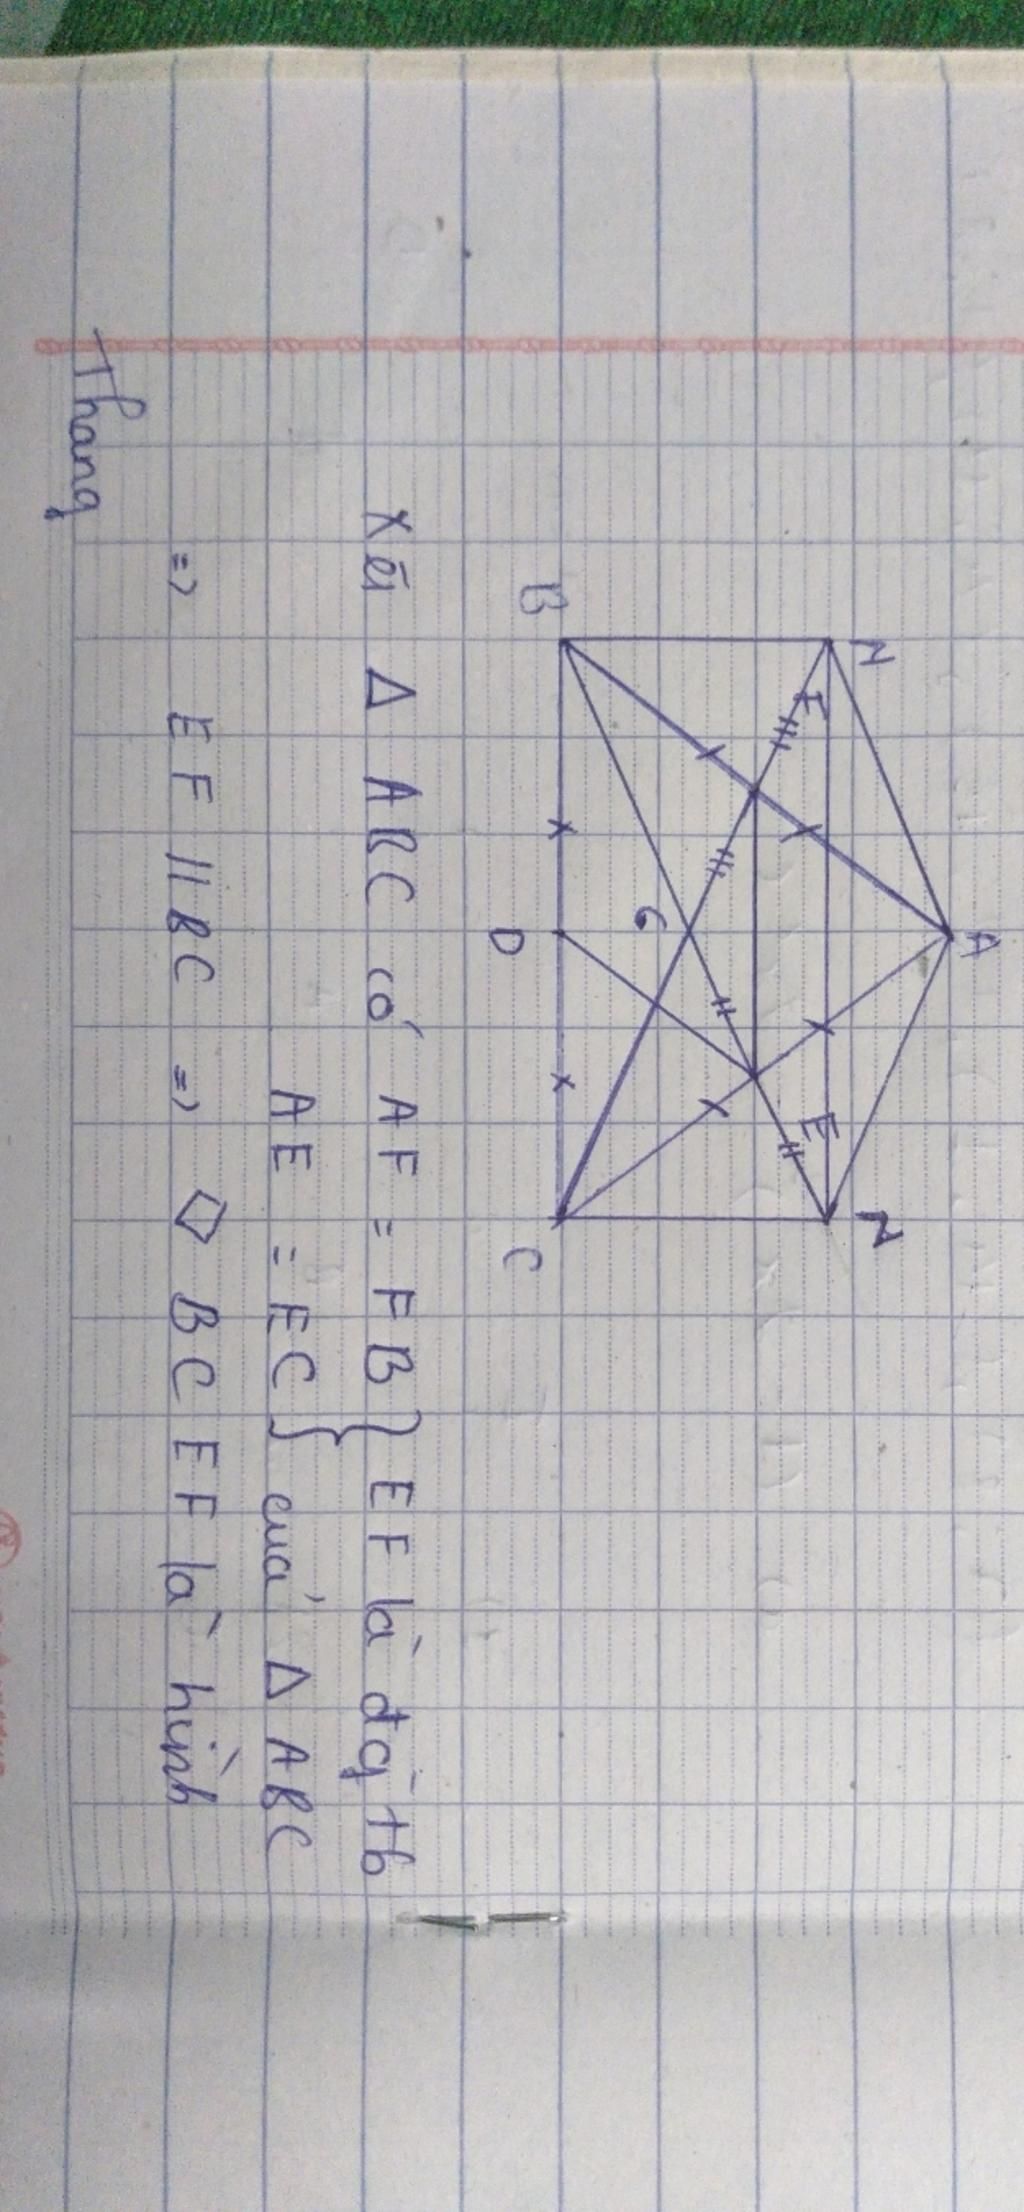 N
A
N
F
E
G
B
D
C
Xét Δ ABC có AF = FB } EF là đg tb
AE = EC } của Δ ABC
=> EF // BC => ◇ BCEF là hình
Thang